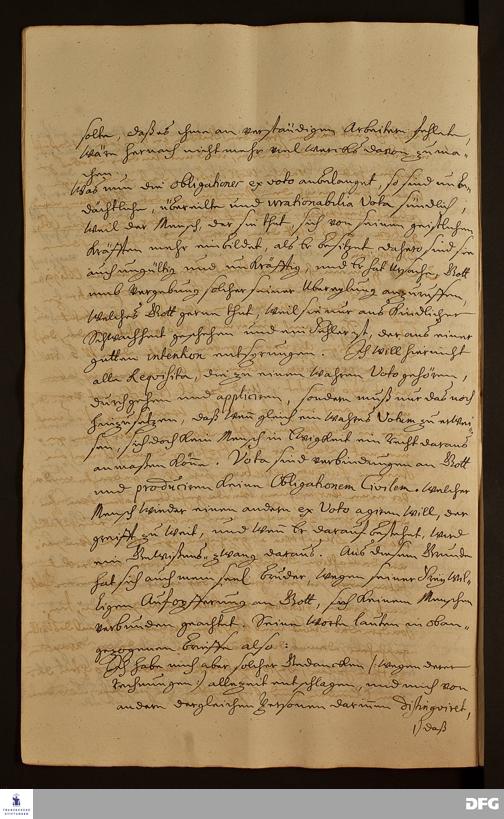 solte, daß es ihme an verständigen Arbeitern fehlete,
wäre hernach nicht mehr viel werks davon zu ma-
chen.
Was nun die obligationes ex voto anbelanget, so sind unbe-
dächtliche, übereilte und irrationabilia Vota sündlich,
weil der Mensch, der sie thut, sich von seinen geistlichen
Kräfften mehr einbildet, als Er besitzet daher sind sie
auch ungültig und unkräfftig, und Er hat Ursache, Gott
umb Vergebung solcher seiner Übereylung anzuruffen,
welches Gott gerne thut, weil sie nur aus kindlicher
Schwachheit geschehen und ein Fehler ist, der aus einer
gutten intention entsprungen. Ich will hier nicht
alle Requisita, die zu einem wahren Voto gehören,
durchgehen und appliciren, sondern muß nur das noch
hinzusetzen, daß wenn gleich ein wahres Votum zu erwei-
sen, sich doch kein Mensch in Ewigkeit ein Recht daraus
anmaßen könne. Vota sind verbindungen an Gott
und produciren keine Obligationem Civilem. Welcher
Mensch wieder einen andern ex Voto agiren will, der
greifft zu weit, und wenn Er darauf bestehet, wird
ein Gewissens-zwang daraus. Aus diesem Grunde
hat sich auch mein seel. Bruder, wegen seiner Freywil-
ligen Aufopfferung an Gott, sich keinem Menschen
verbunden geachtet. Seine Worte lauten im oban-
gezogenen brieffe also:
Ich habe mich aber solcher Gedancken /: wegen derer
Rechnungen :/ allezeit entschlagen, und mich von
andern dergleichen Personen darinnen distinguiret,
1) daß
FRANCKESCHE STIFTUNGEN
DFG